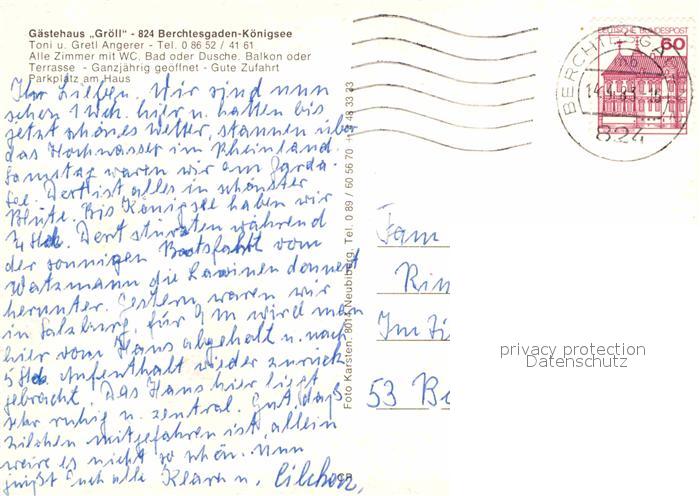 Gästehaus „Gröll" - 824 Berchtesgaden-Königsee
Toni u. Gretl Angerer - Tel. 0 86 52 / 41 61
Alle Zimmer mit WC, Bad oder Dusche, Balkon oder
Terrasse - Ganzjährig geöffnet - Gute Zufahrt
Parkplatz am Haus
Ihr Lieben. Wir sind nun
schon 1 Wch. hier u. hatten bis
jetzt schönes Wetter, staunen über
das Hochwasser im Rheinland.
Samstag waren wir am Garda-
See. Dort ist alles in schönster
Blüte. Bis Königsee haben wir
Std. Dort stürzten während
der sonnigen Bootsfahrt vom
Watzmann die Lawinen donnernd
herunter. Gestern waren wir
in Salzburg, für 9 M wird man
hier vom Haus abgeholt u. nach
5 Std. Aufenthalt wieder zurück
gebracht. Das Haus hier liegt
sehr ruhig u. zentral. Gut, daß
mitgefahren ist, allein
wäre es nicht so schön. Nun
grüßt Euch alle Klara u.
Foto Karsten, 8014 Neubiberg, Tel. 0 89 / 60 56 70 + 48 33 23
DEUTSCHE BUNDESPOST
60
BERCHTESGA
14.4.83
824
Fam
Rin
Im
53 B
privacy protection
Datenschutz